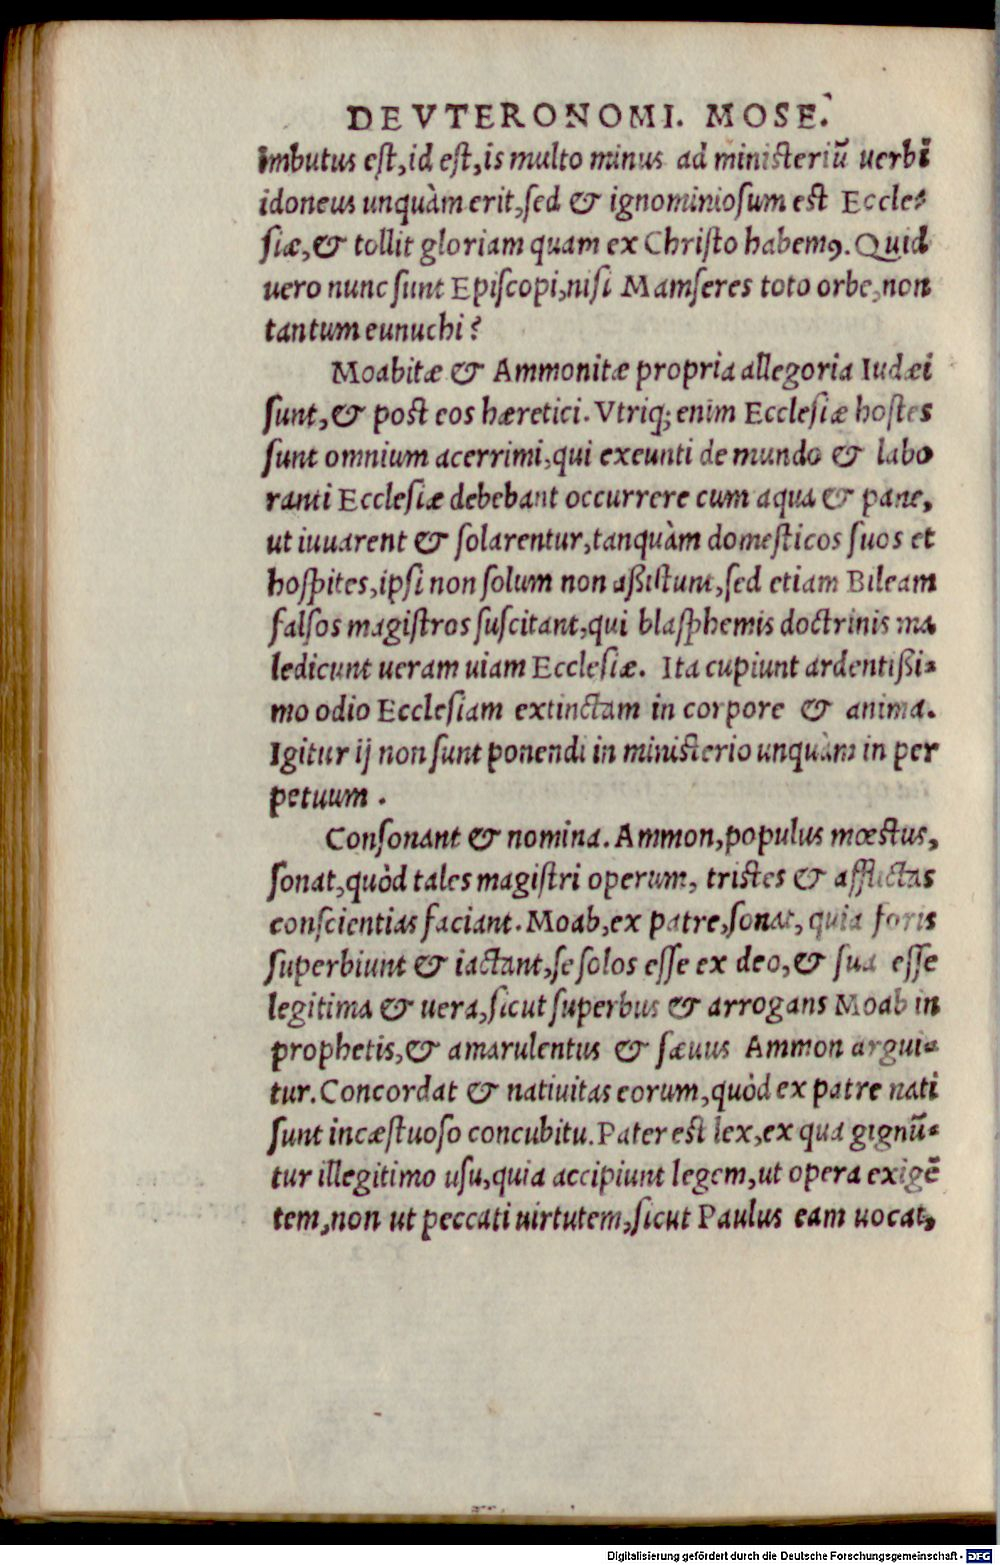 DEVTERONOMI. MOSE.
imbutus est, id est, is multo minus ad ministeriū uerbi
idoneus unquàm erit, sed & ignominiosum est Eccle-
siæ, & tollit gloriam quam ex Christo habemꝰ. Quid
uero nunc sunt Episcopi, nisi Mamseres toto orbe, non
tantum eunuchi?
Moabitæ & Ammonitæ propria allegoria Iudæi
sunt, & post eos hæretici. Vtriq; enim Ecclesiæ hostes
sunt omnium acerrimi, qui exeunti de mundo & labo
ranti Ecclesiæ debebant occurrere cum aqua & pane,
ut iuuarent & solarentur, tanquàm domesticos suos et
hospites, ipsi non solum non aßistunt, sed etiam Bileam
falsos magistros suscitant, qui blasphemis doctrinis ma
ledicunt ueram uiam Ecclesiæ. Ita cupiunt ardentißi-
mo odio Ecclesiam extinctam in corpore & anima.
Igitur ij non sunt ponendi in ministerio unquàm in per
petuum.
Consonant & nomina. Ammon, populus mœstus,
sonat, quòd tales magistri operum, tristes & afflictas
conscientias faciant. Moab, ex patre, sonat, quia foris
superbiunt & iactant, se solos esse ex deo, & sua esse
legitima & uera, sicut superbus & arrogans Moab in
prophetis, & amarulentus & sæuus Ammon argui-
tur. Concordat & natiuitas eorum, quòd ex patre nati
sunt incæstuoso concubitu. Pater est lex, ex qua gignū-
tur illegitimo usu, quia accipiunt legem, ut opera exigē
tem, non ut peccati uirtutem, sicut Paulus eam uocat,
Digitalisierung gefördert durch die Deutsche Forschungsgemeinschaft - DFG